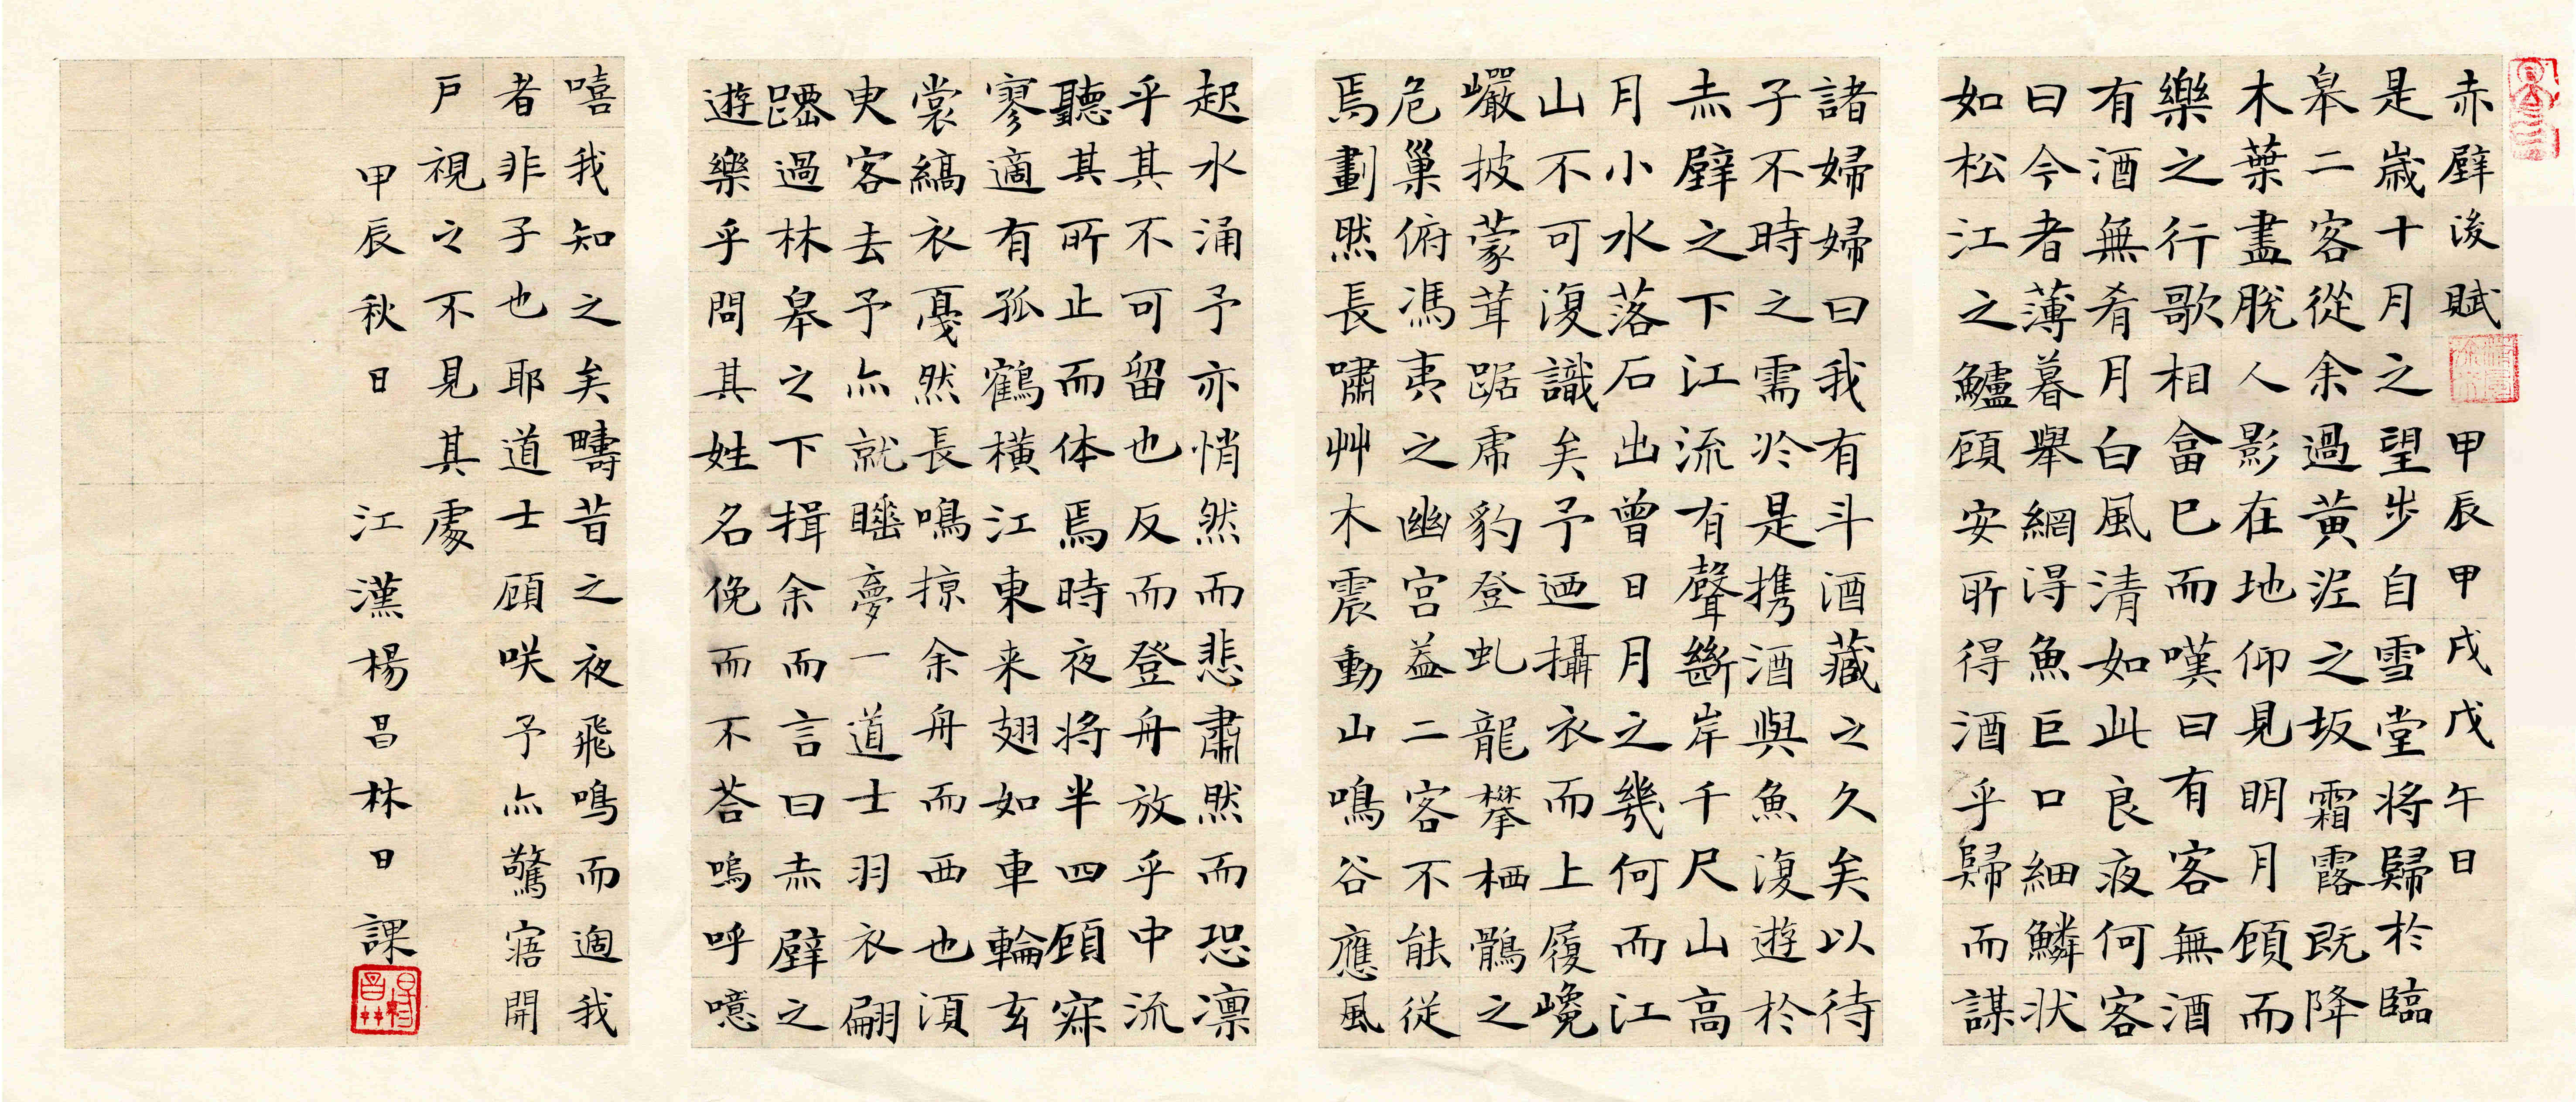 赤壁後賦 甲辰甲戌戊午日
是歲十月之望步自雪堂將歸於臨
皋二客從余過黃泥之坂霜露既降
木葉盡脫人影在地仰見明月顧而
樂之行歌相畣已而嘆曰有客無酒
有酒無肴月白風清如此良夜何客
曰今者薄暮舉網得魚巨口細鱗狀
如松江之鱸顧安所得酒乎歸而謀
諸婦婦曰我有斗酒藏之久矣以待
子不時之需於是携酒與魚復遊於
赤壁之下江流有聲斷岸千尺山高
月小水落石出曾日月之幾何而江
山不可復識矣予迺攝衣而上履巉
巖披蒙茸踞虎豹登虬龍攀栖鶻之
危巢俯馮夷之幽宮蓋二客不能從
焉劃然長嘯艸木震動山鳴谷應風
起水涌予亦悄然而悲肅然而恐凛
乎其不可留也反而登舟放乎中流
聽其所止而体焉時夜將半四顧寂
寥適有孤鶴橫江東来翅如車輪玄
裳縞衣戛然長鳴掠余舟而西也須
臾客去予亦就睡夢一道士羽衣翩
躚過林皋之下揖余而言曰赤壁之
遊樂乎問其姓名俛而不荅嗚呼噫
嘻我知之矣疇昔之夜飛鳴而過我
者非子也耶道士顧咲予亦驚寤開
戶視之不見其處
甲辰秋日 江漢楊昌林日課